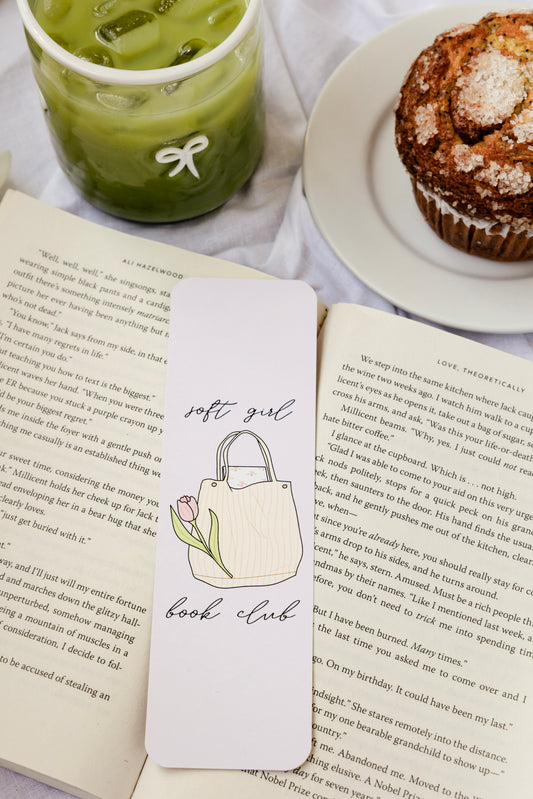 ALI HAZELWOOD
"Well, well, well," she singsongs, sta
wearing simple black pants and a cardig
outfit there's something intensely matriarc
picture her ever having been anything but m
who's not dead."
"You know," Jack says from my side, in that
"I have many regrets in life."
"I'm certain you do."
ut teaching you how to text is the biggest."
licent waves her hand. "When you were three
e ER because you stuck a purple crayon up y
d be your biggest regret."
ds me inside the foyer with a gentle push o
ching me casually is an established thing we
ur sweet time, considering the money you
k." Millicent holds her cheek up for Jack t
ead enveloping her in a bear hug that she
clearly loves.
"just get buried with it."
t."
way, and I'll just will my entire fortune
d and marches down the glitzy hall-
unperturbed, somehow managing
eing a mountain of muscles in a
f consideration, I decide to fol-
to be accused of stealing an
soft girl
book club
LOVE, THEORETICALLY
We step into the same kitchen where Jack caug
the wine two weeks ago. I watch him walk to a cup
licent's eyes as he opens it, take out a bag of sugar, se
cross his arms, and ask, "Was this your life-or-death
hate bitter coffee."
Millicent beams. "Why, yes. I just could not reac
I glance at the cupboard. Which is . . . not high.
"Glad I was able to come to your aid on this very urge
ck nods politely, stops for a quick peck on his grand
eek, then saunters to the door. His hand finds the usua
ack, and he gently pushes me out of the kitchen, clear
ve, when—
ut since you're already here, you should really stay for co
's arms drop to his sides, and he turns around.
icent," he says, stern. Amused. Must be a rich people thi
ndmas by their names. "Like I mentioned last week, a
efore, you don't need to trick me into spending tim
But I have been burned. Many times."
the last time you asked me to come over and I
go. On my birthday. It could have been my last."
indsight." She stares remotely into the distance.
for my one bearable grandchild to show up—"
country."
ft me. Abandoned me. Moved to the
ching elusive. A Nobel Prize
day for seven years
that Nobel Prize com